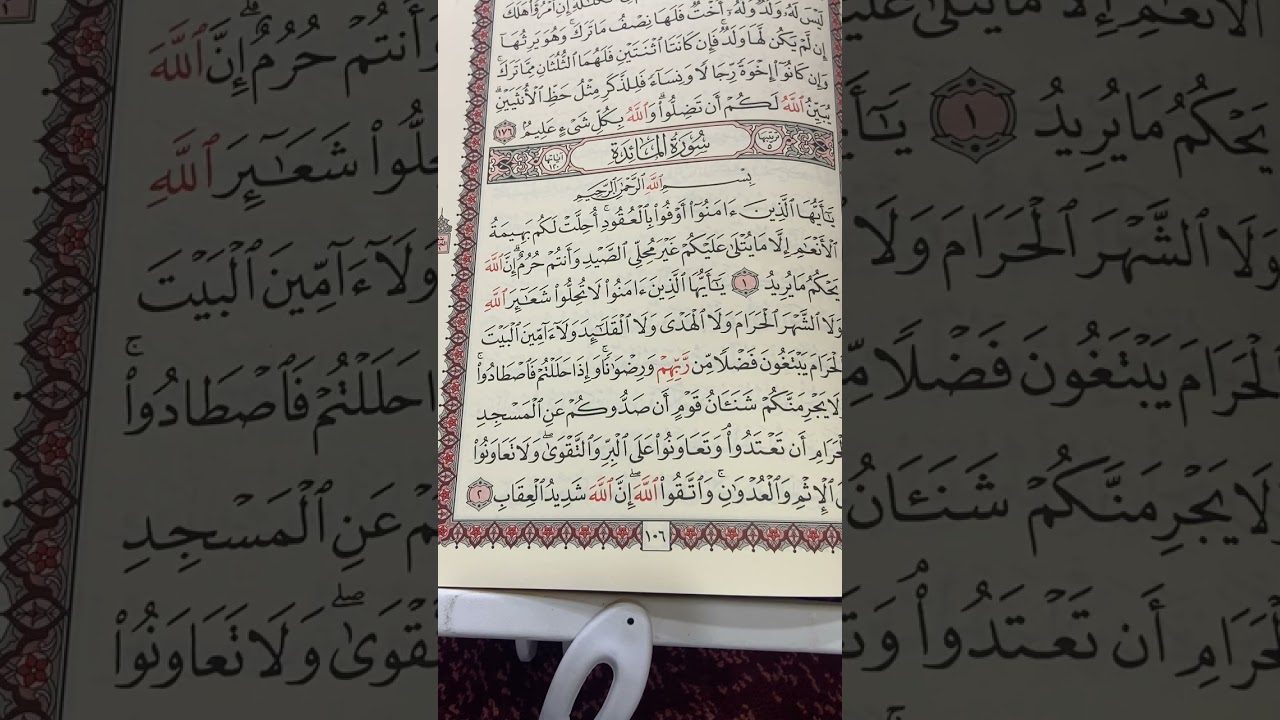 لَيْسَ لَهُۥ وَلَدٌ وَلَهُۥٓ أُخْتٌ فَلَهَا نِصْفُ مَا تَرَكَ ۚ وَهُوَ يَرِثُهَآ
إِن لَّمْ يَكُن لَّهَا وَلَدٌ ۚ فَإِن كَانَتَا ٱثْنَتَيْنِ فَلَهُمَا ٱلثُّلُثَانِ مِمَّا تَرَكَ ۚ
وَإِن كَانُوٓا۟ إِخْوَةً رِّجَالًا وَنِسَآءً فَلِلذَّكَرِ مِثْلُ حَظِّ ٱلْأُنثَيَيْنِ ۗ
يُبَيِّنُ ٱللَّهُ لَكُمْ أَن تَضِلُّوا۟ ۗ وَٱللَّهُ بِكُلِّ شَىْءٍ عَلِيمٌۢ ١٧٦
سُورَةُ المَائدة
بِسْمِ ٱللَّهِ ٱلرَّحْمَٰنِ ٱلرَّحِيمِ
يَٰٓأَيُّهَا ٱلَّذِينَ ءَامَنُوٓا۟ أَوْفُوا۟ بِٱلْعُقُودِ ۚ أُحِلَّتْ لَكُم بَهِيمَةُ
ٱلْأَنْعَٰمِ إِلَّا مَا يُتْلَىٰ عَلَيْكُمْ غَيْرَ مُحِلِّى ٱلصَّيْدِ وَأَنتُمْ حُرُمٌ ۗ إِنَّ ٱللَّهَ
يَحْكُمُ مَا يُرِيدُ ١ يَٰٓأَيُّهَا ٱلَّذِينَ ءَامَنُوا۟ لَا تُحِلُّوا۟ شَعَٰٓئِرَ ٱللَّهِ
وَلَا ٱلشَّهْرَ ٱلْحَرَامَ وَلَا ٱلْهَدْىَ وَلَا ٱلْقَلَٰٓئِدَ وَلَآ ءَآمِّينَ ٱلْبَيْتَ
ٱلْحَرَامَ يَبْتَغُونَ فَضْلًا مِّن رَّبِّهِمْ وَرِضْوَٰنًا ۚ وَإِذَا حَلَلْتُمْ فَٱصْطَادُوا۟ ۚ
وَلَا يَجْرِمَنَّكُمْ شَنَـَٔانُ قَوْمٍ أَن صَدُّوكُمْ عَنِ ٱلْمَسْجِدِ
ٱلْحَرَامِ أَن تَعْتَدُوا۟ ۘ وَتَعَاوَنُوا۟ عَلَى ٱلْبِرِّ وَٱلتَّقْوَىٰ ۖ وَلَا تَعَاوَنُوا۟
ٱلْإِثْمِ وَٱلْعُدْوَٰنِ ۚ وَٱتَّقُوا۟ ٱللَّهَ ۖ إِنَّ ٱللَّهَ شَدِيدُ ٱلْعِقَابِ ٢
١٠٦